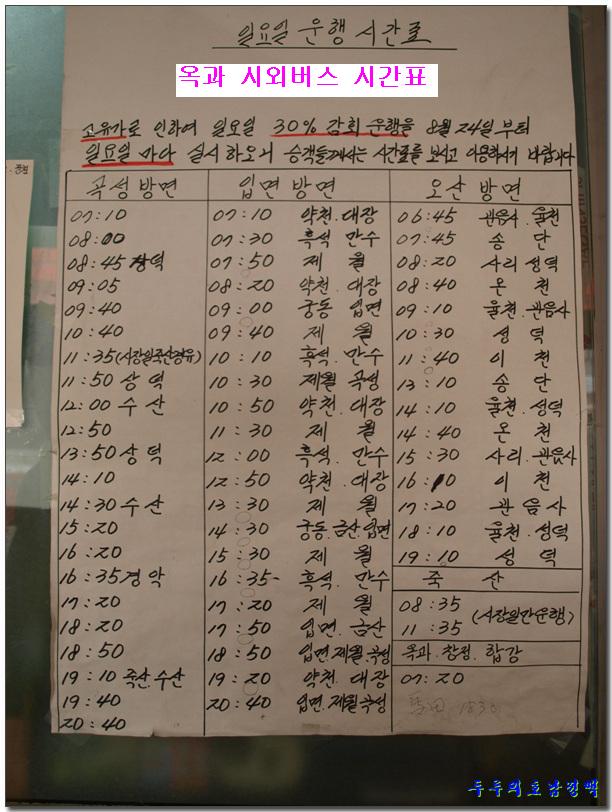 일요일 운행 시간표
옥과 시외버스 시간표
고유가로 인하여 일요일 30% 감회운행을 8월 24일부터
일요일 마다 실시하오니 승객들께서는 시간표를 보시고 이용하시기 바랍니다
곡성 방면
07:10
08:00
08:45 상덕
09:05
09:40
10:40
11:35 (시장일죽산경유)
11:50 상덕
12:00 수산
12:50
13:50 상덕
14:10
14:30 수산
15:20
16:20
16:35 경악
17:20
18:20
18:50
19:10 죽산.수산
19:40
20:40
입면 방면
07:10 약천.대장
07:30 흑석.만수
07:50 제월
08:20 약천.대장
09:00 궁동.입면
09:40 제월
10:10 흑석.만수
10:30 제월.곡성
10:50 약천.대장
11:30 제월
12:00 흑석.만수
12:50 약천.대장
13:30 제월
14:30 궁동.금산.입면
15:30 제월
16:35 흑석.만수
17:20 제월
17:50 입면.금산
18:50 입면.제월.곡성
19:20 약천.대장
20:40 입면.제월.곡성
오산 방면
06:45 관음사.율천
07:45 송단
08:20 사리.성덕
08:40 온천
09:10 율천.관음사
10:30 성덕
11:40 이천
13:10 송단
14:10 율천.성덕
14:40 온천
15:30 사리.관음사
16:10 이천
17:20 관음사
18:10 율천.성덕
19:10 성덕
죽산
08:35
11:35 (시장일만운행)
옥과.창정.합강
07:20
두루의호남정맥